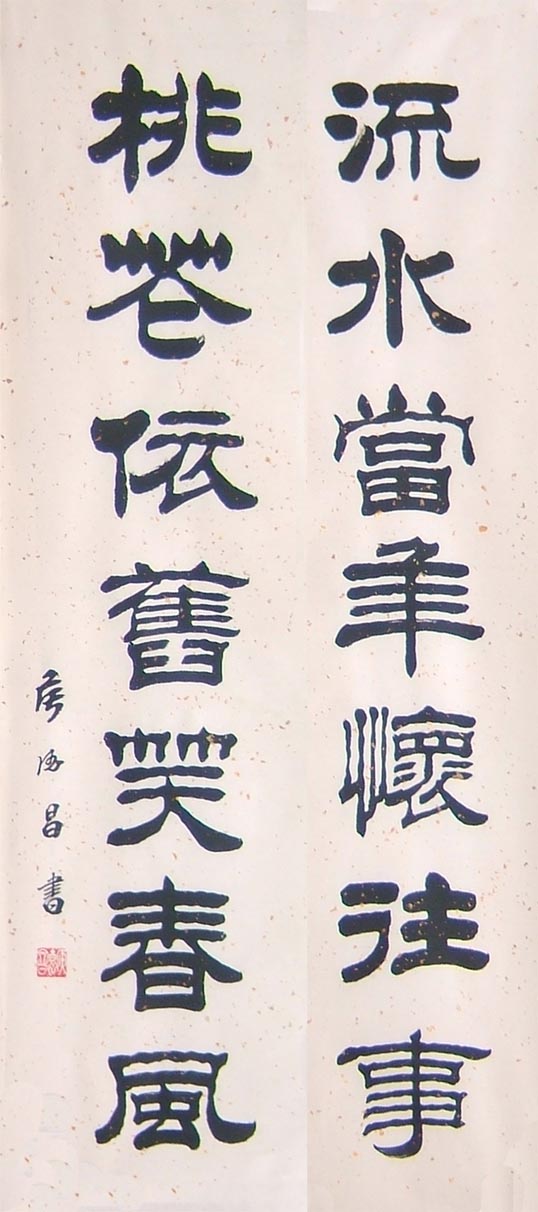 流水當年懷往事
桃花依舊笑春風
昌書